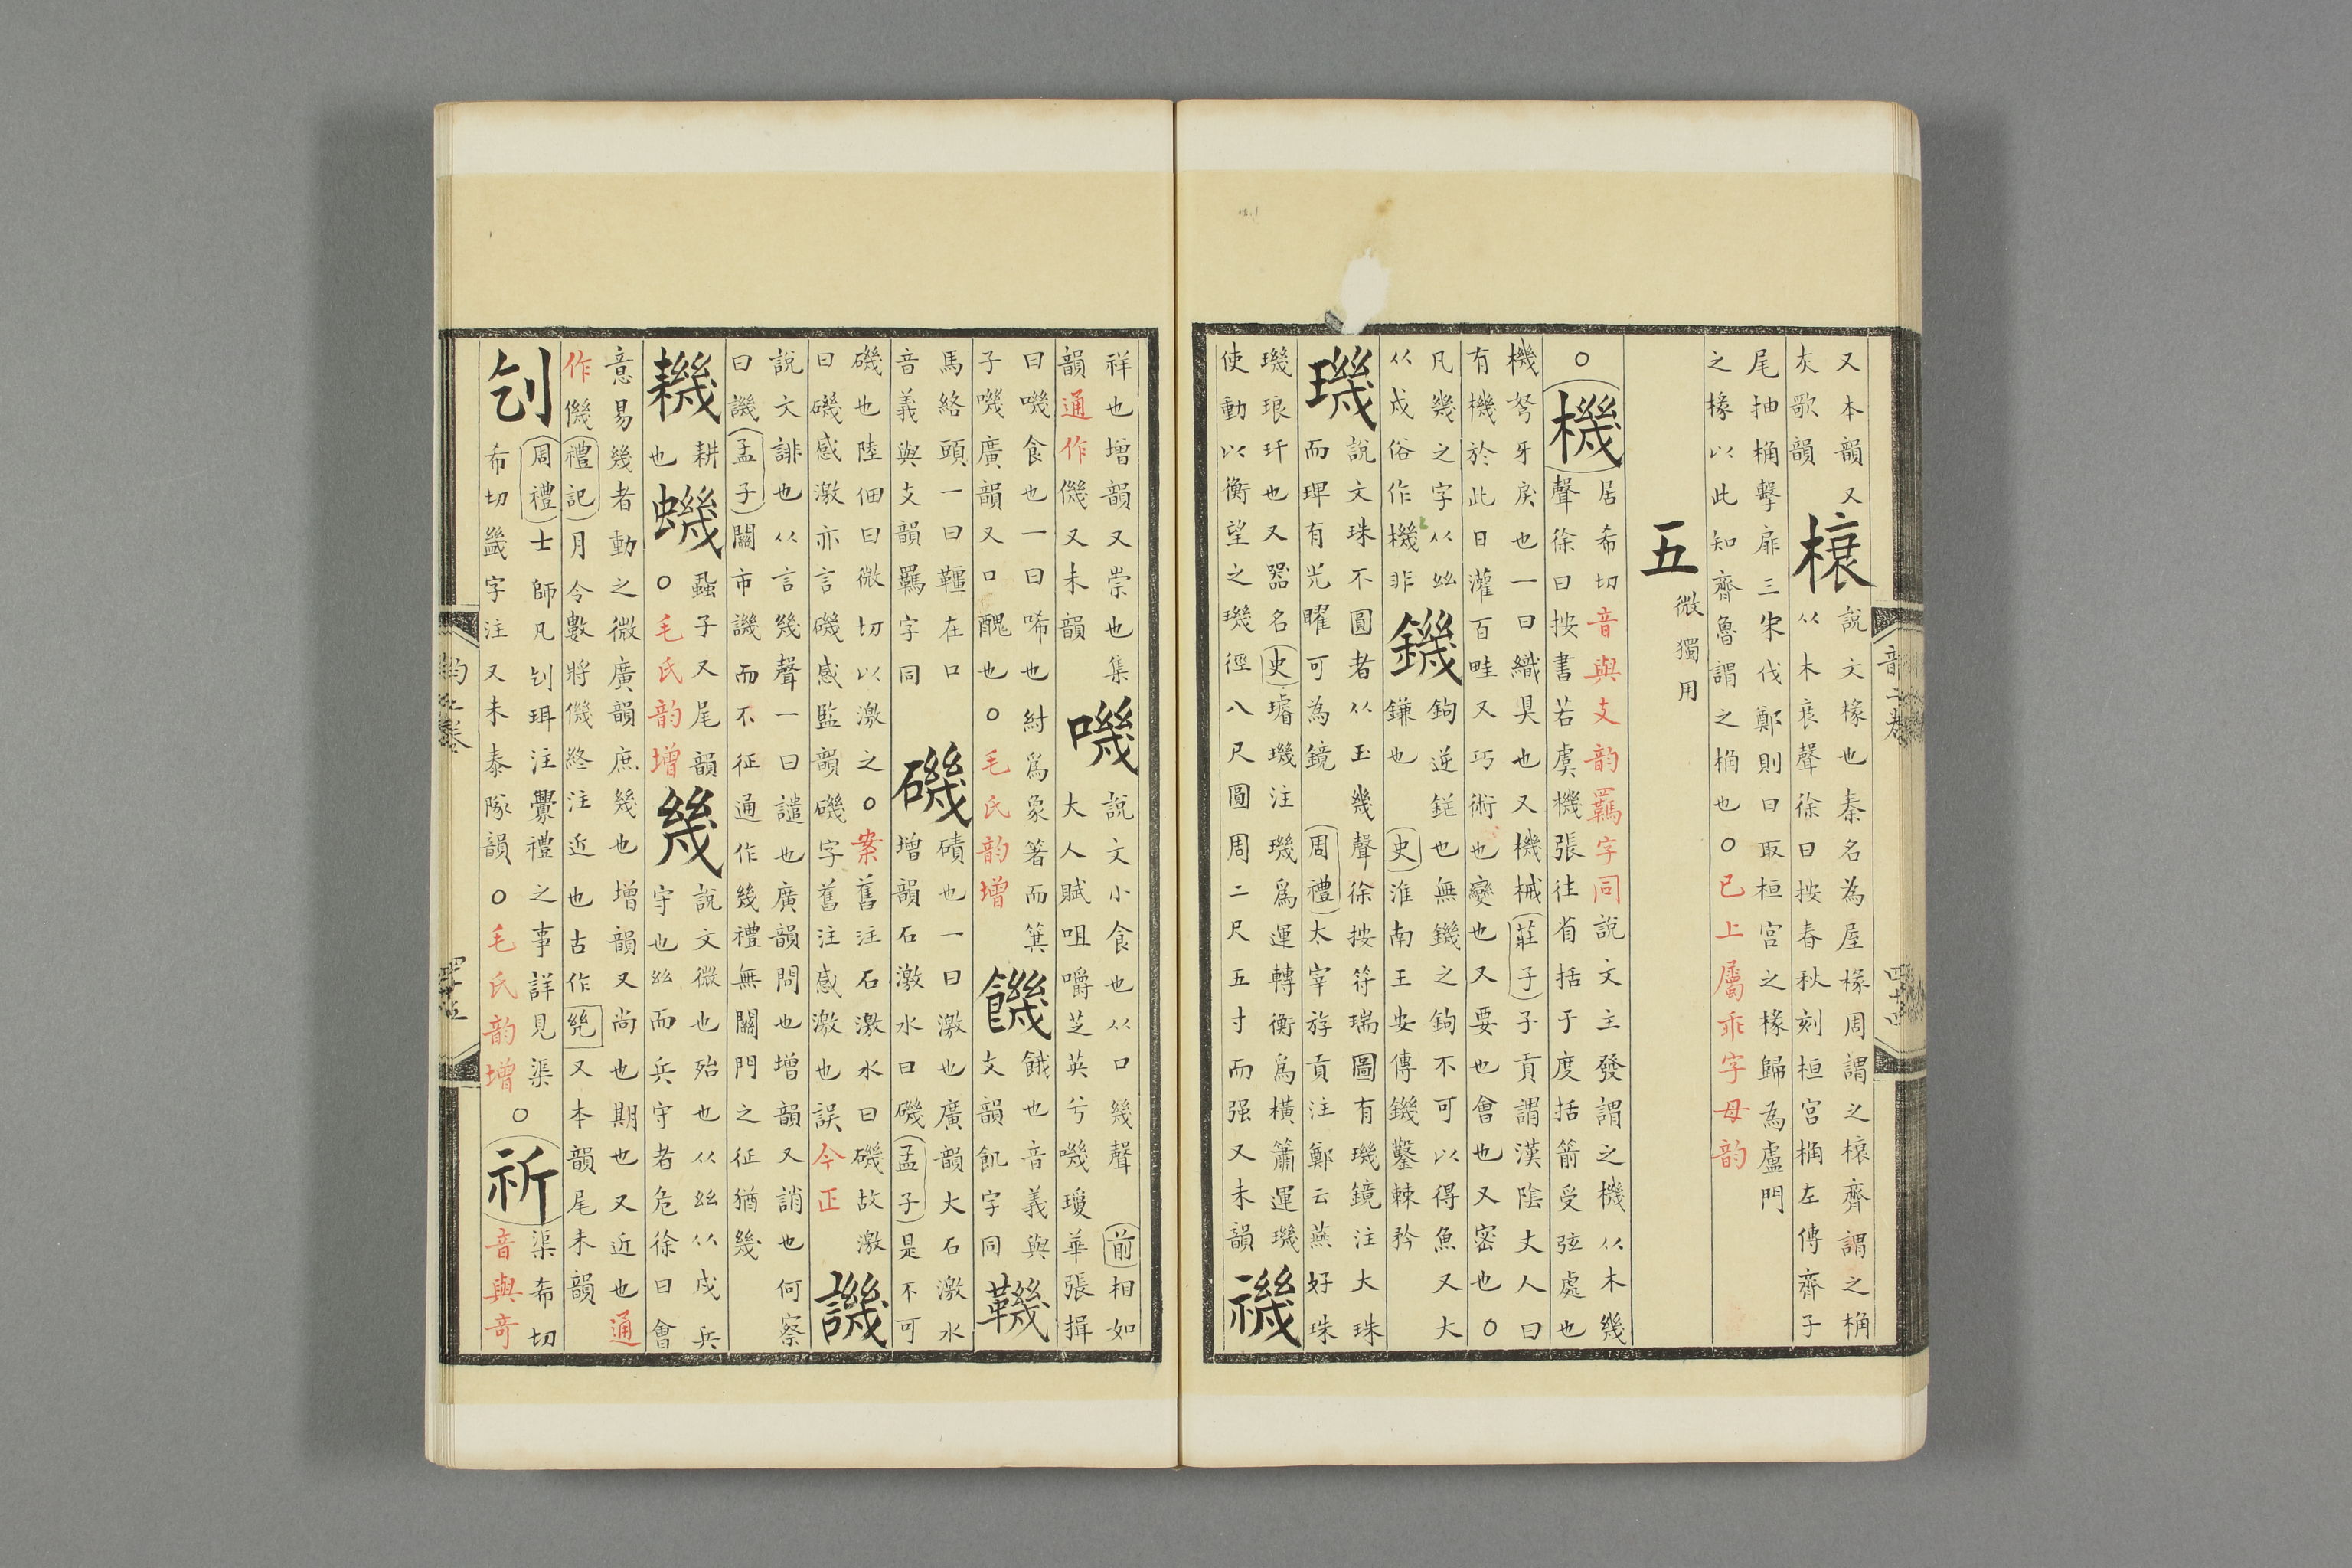 又本韻又
灰歌韻
榱
說文椽也秦名為屋椽周謂之榱齊謂之桷
从木衰聲徐曰按春秋刻桓宮桷左傳齊子
尾抽桷擊扉三宋伐鄭則曰取桓宮之椽歸為盧門
之椽以此知齊魯謂之桷也○已上屬乖字母韵
五
微獨用
○機
居希切音與支韵羈字同說文主發謂之機从木幾
聲徐曰按書若虞機張往省括于度括箭受弦處也
機弩牙戾也一曰織具也又機械莊子子貢謂漢陰丈人曰
有機於此日灌百畦又巧術也變也又要也會也又密也○
凡幾之字从絲
从戍俗作機非
鐖
鉤逆鋩也無鐖之鉤不可以得魚又大
鎌也史淮南王安傳鐖鑿棘矜
璣
說文珠不圓者从玉幾聲徐按符瑞圖有璣鏡注大珠
而琾有光曜可為鏡周禮太宰斿貢注鄭云燕好珠
璣琅玕也又器名史璿璣注璣爲運轉衡爲橫簫運璣
使動以衡望之璣徑八尺圓周二尺五寸而强又未韻
禨
祥也增韻又崇也集
韻通作僟又未韻
嘰
說文小食也从口幾聲前相如
大人賦咀嚼芝英兮嘰瓊華張揖
曰嘰食也一曰唏也紂爲象箸而箕
子嘰廣韻又口醜也○毛氏韵增
饑
餓也音義與
支韻飢字同
鞿
馬絡頭一曰韁在口
音義與支韻羈字同
磯
磧也一曰激也廣韻大石激水
增韻石激水曰磯孟子是不可
磯也陸佃曰微切以激之○案舊注石激水曰磯故激
曰磯感激亦言磯感監韻磯字舊注感激也誤今正
譏
說文誹也从言幾聲一曰譴也廣韻問也增韻又誚也何察
曰譏孟子關市譏而不征通作幾禮無關門之征猶幾
耭
耕
也
蟣
蝨子又尾韻
○毛氏韵增
幾
說文微也殆也从絲从戍兵
守也絲而兵守者危徐曰會
意易幾者動之微廣韻庶幾也增韻又尚也期也又近也通
作僟禮記月令數將僟終注近也古作𠒎又本韻尾未韻
刉
周禮士師凡刉珥注釁禮之事詳見渠
希切幾字注又未泰隊韻○毛氏韵增
○祈
渠希切
音與奇